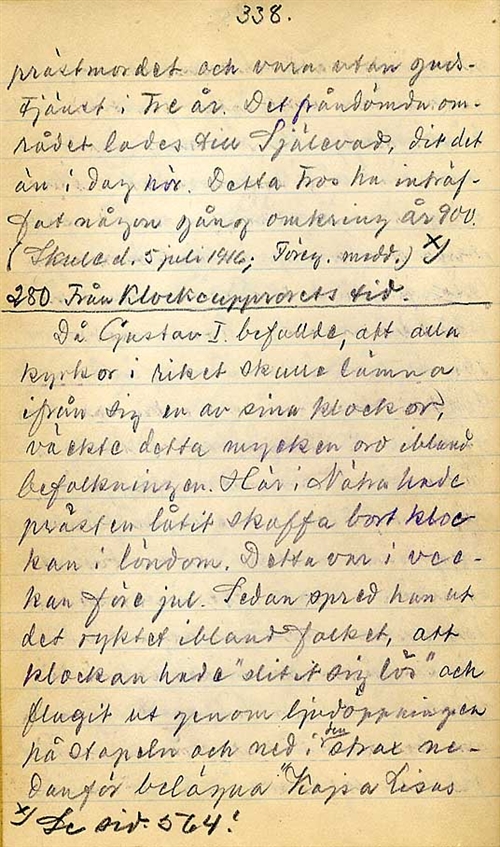 338.
prästmordet och vara utan guds-
tjänst i tre år. Det fråndömda om-
rådet lades till Själevad, dit det
än i dag hör. Detta tros ha inträf-
fat någon gång omkring år 900.
(Skule d. 5 juli 1916; Föreg. medd.) x)
280 Från Klockeupprorets tid.
Då Gustav I. befallde, att alla
kyrkor i riket skulle lämna
ifrån sig en av sina klockor,
väckte detta mycken oro ibland
befolkningen. Här i Nätra hade
prästen låtit skaffa bort kloc-
kan i löndom. Detta var i vec-
kan före jul. Sedan spred han ut
det ryktet ibland folket, att
klockan hade "slitit sig lös" och
flugit ut genom ljudöppningen
på stapeln och ned i den strax ne-
danför belägna "Kajsa Lisas
x) Se sid. 564!